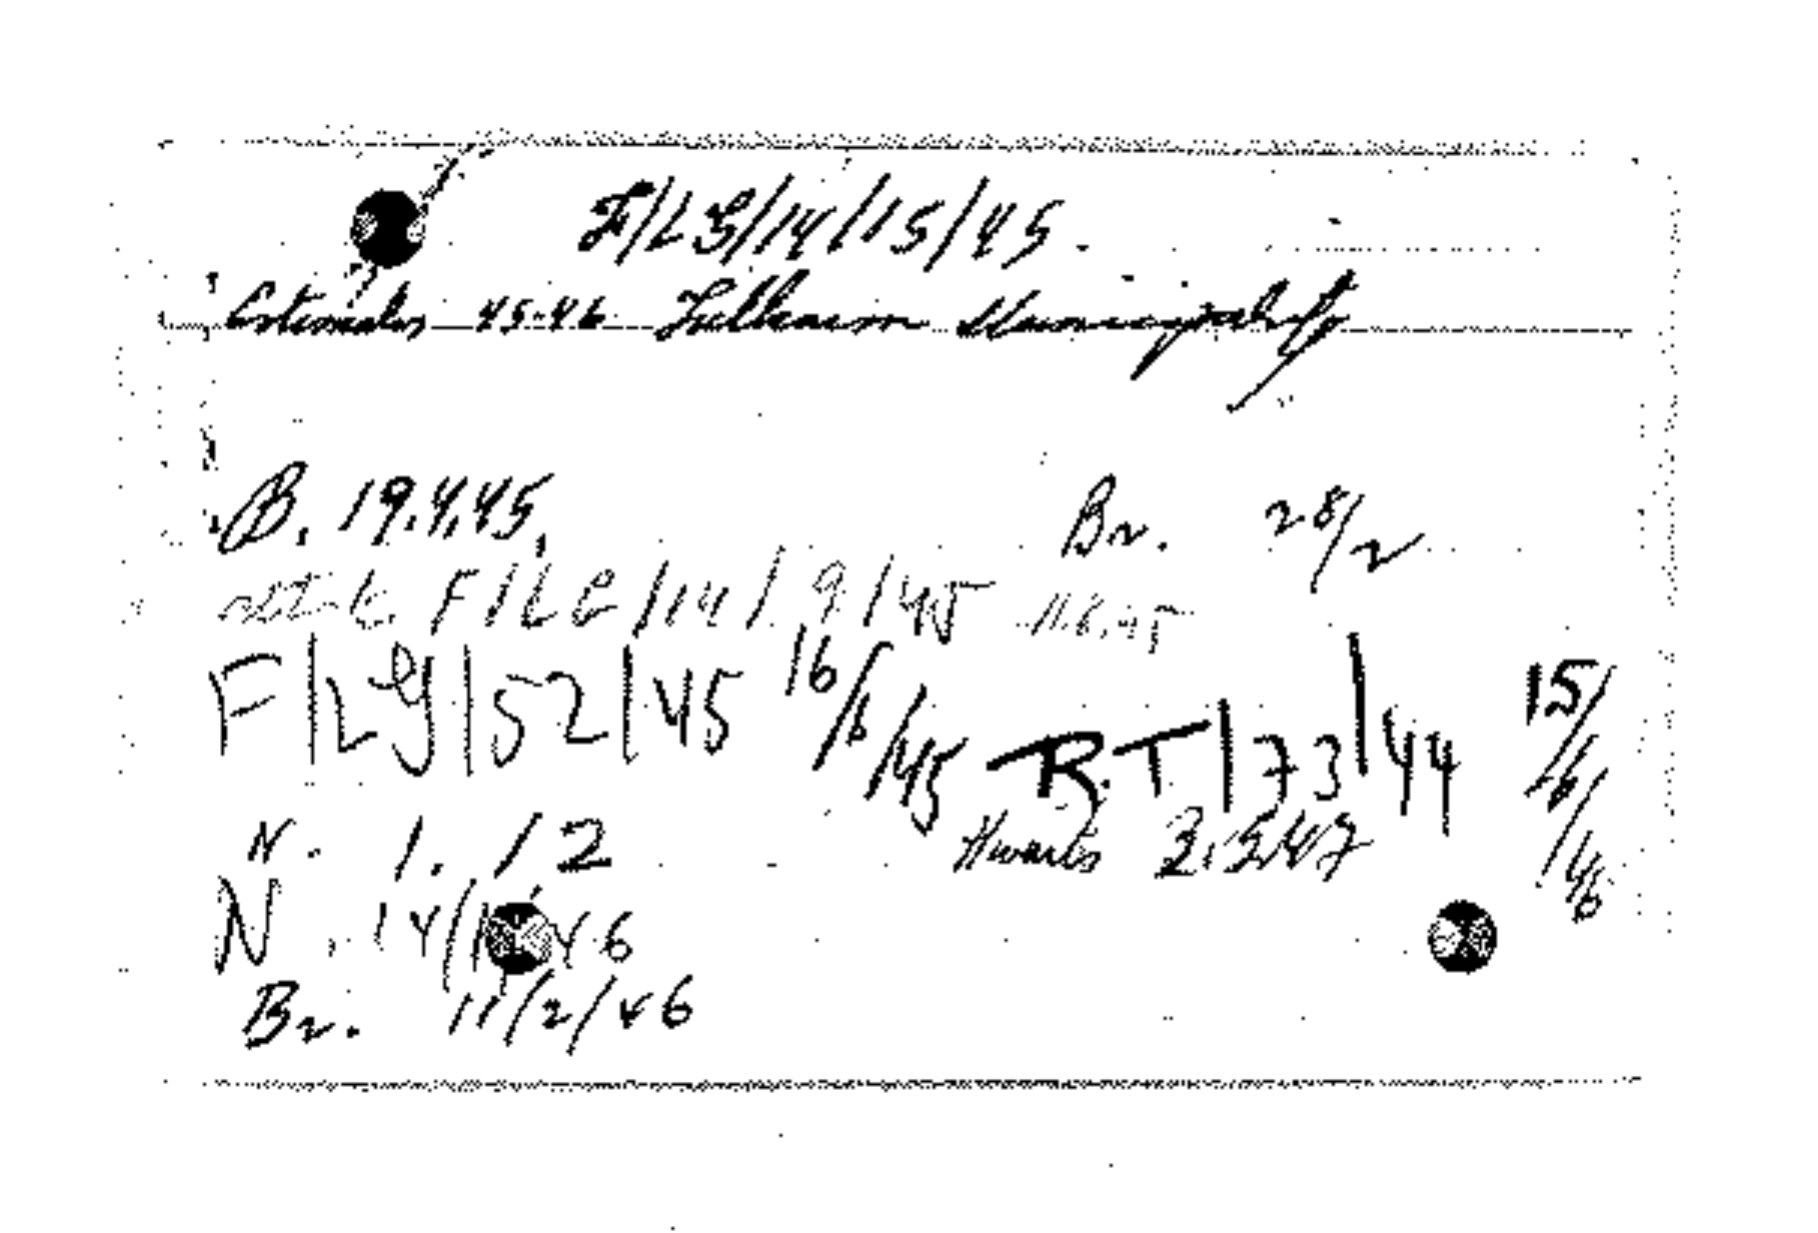 F/LG/14/15/45.
Estimates 45-46 Tulkarm Municipality
B. 19.4.45. Br. 28/2
F/LG/14/9/45 11.6.45
F/LG/52/45 16/6/45 R.T/73/44 15/6/46
N. 1.12 2.5.47
N. 14/1 46
Br. 11/2/46